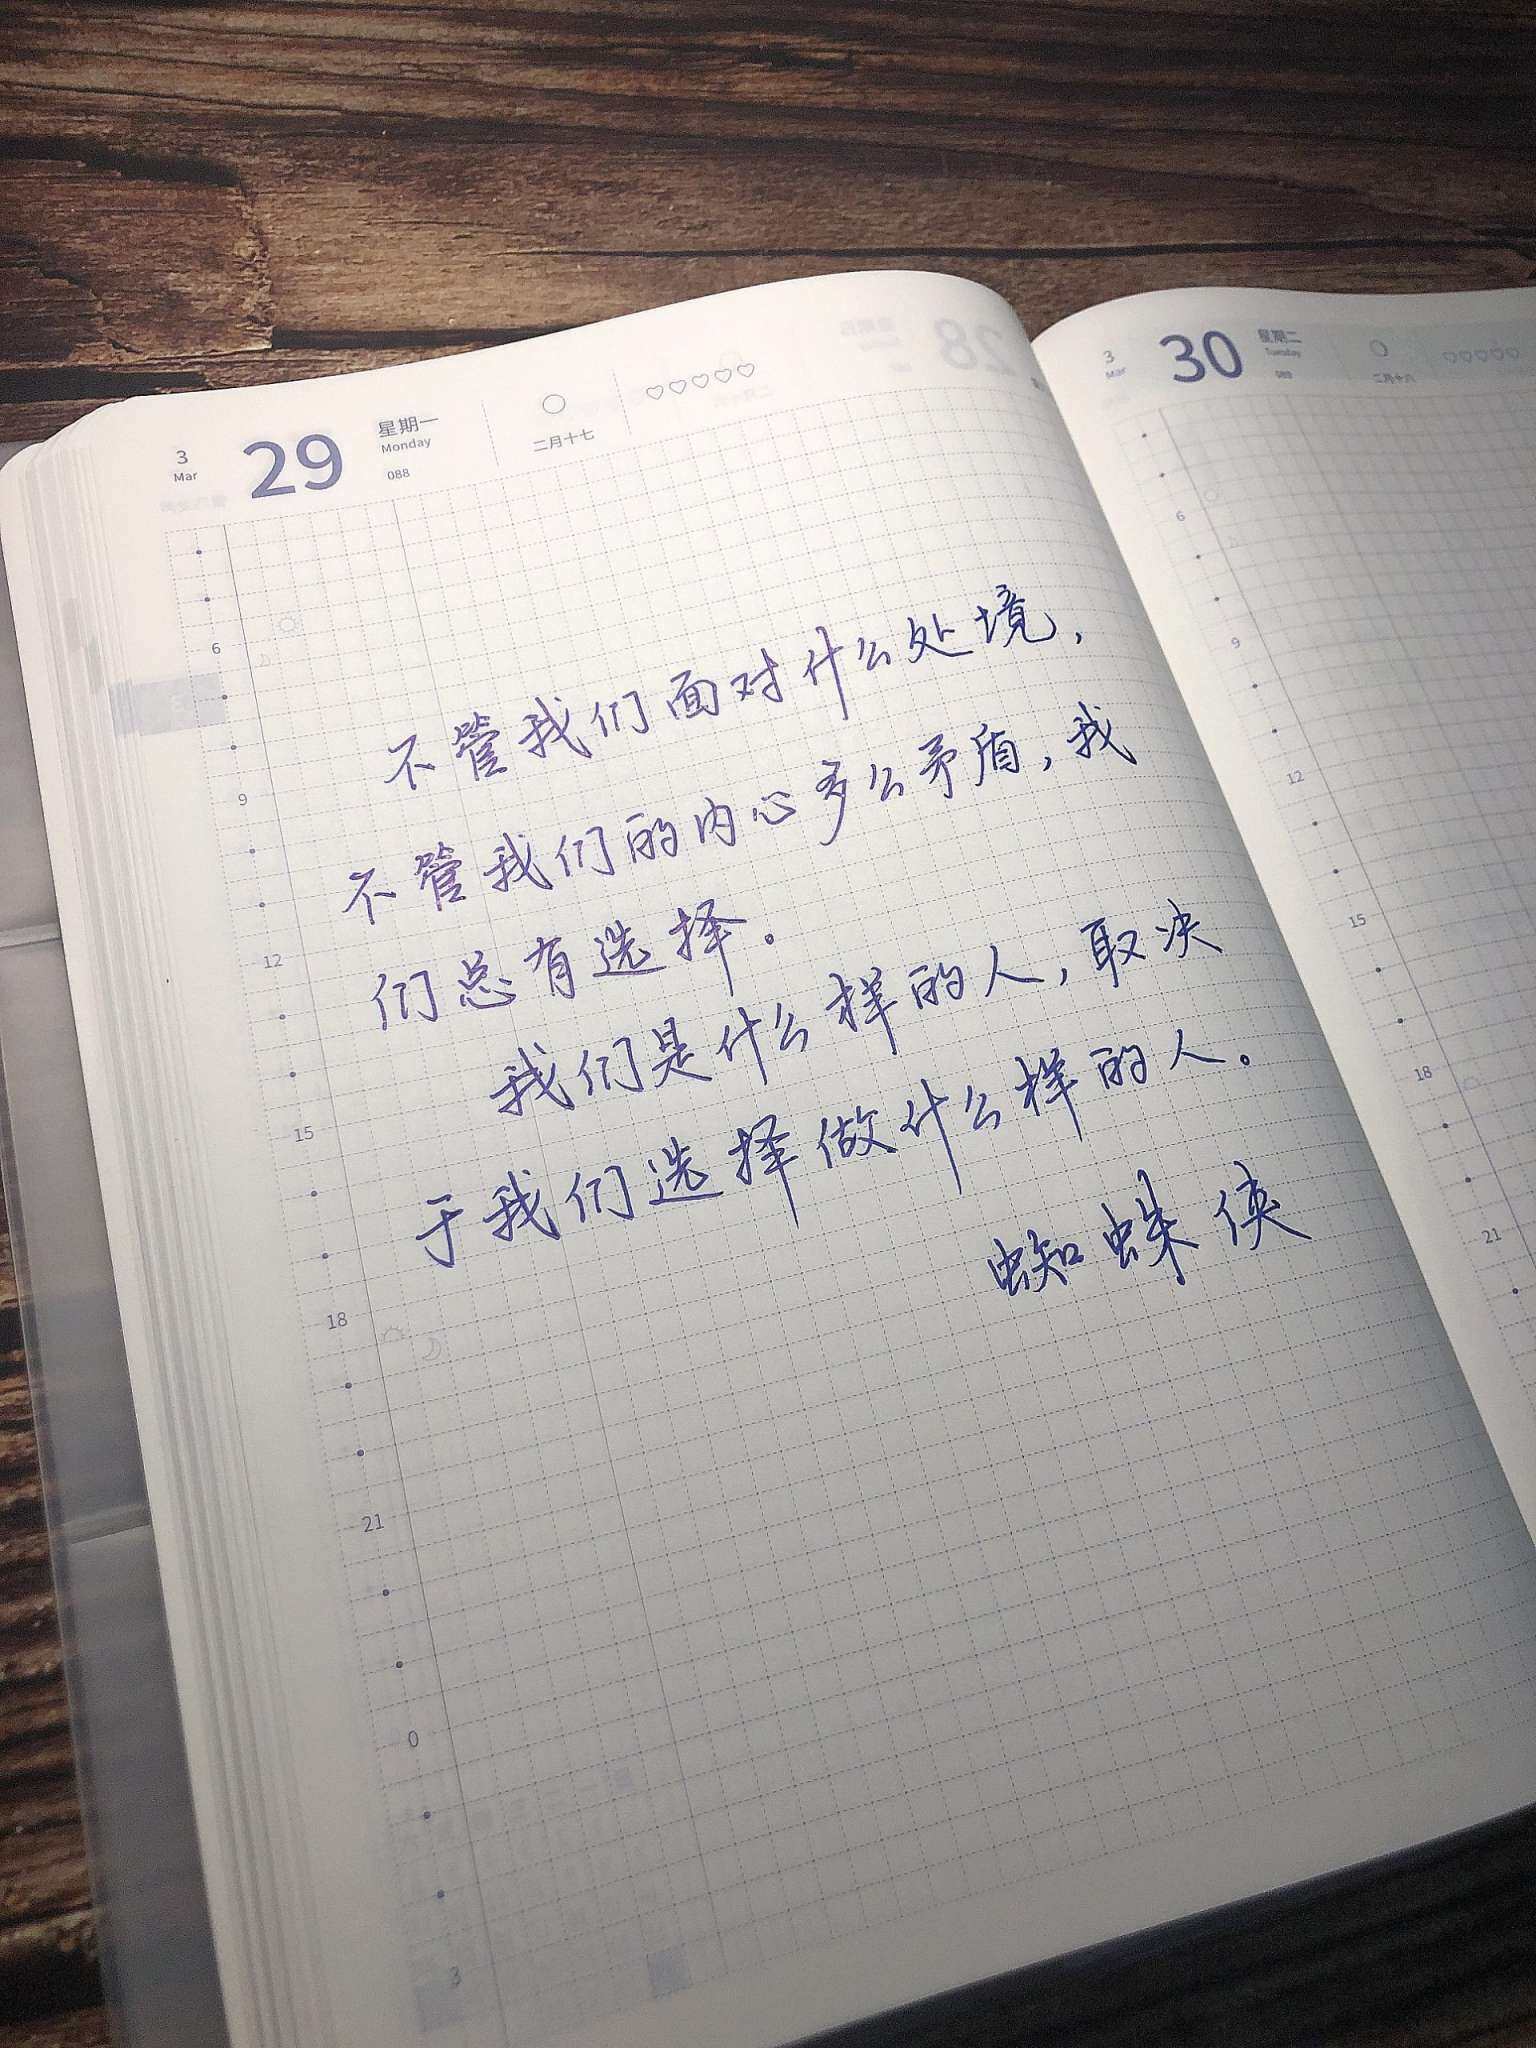 3
Mar
29
星期一
Monday
088
二月十七
6
9
12
15
18
21
0
3
不管我们面对什么处境，
不管我们的内心多么矛盾，我
们总有选择。
我们是什么样的人，取决
于我们选择做什么样的人。
蜘蛛侠
3
Mar
30
星期二
Tuesday
089
二月十八
6
9
12
15
18
21
28